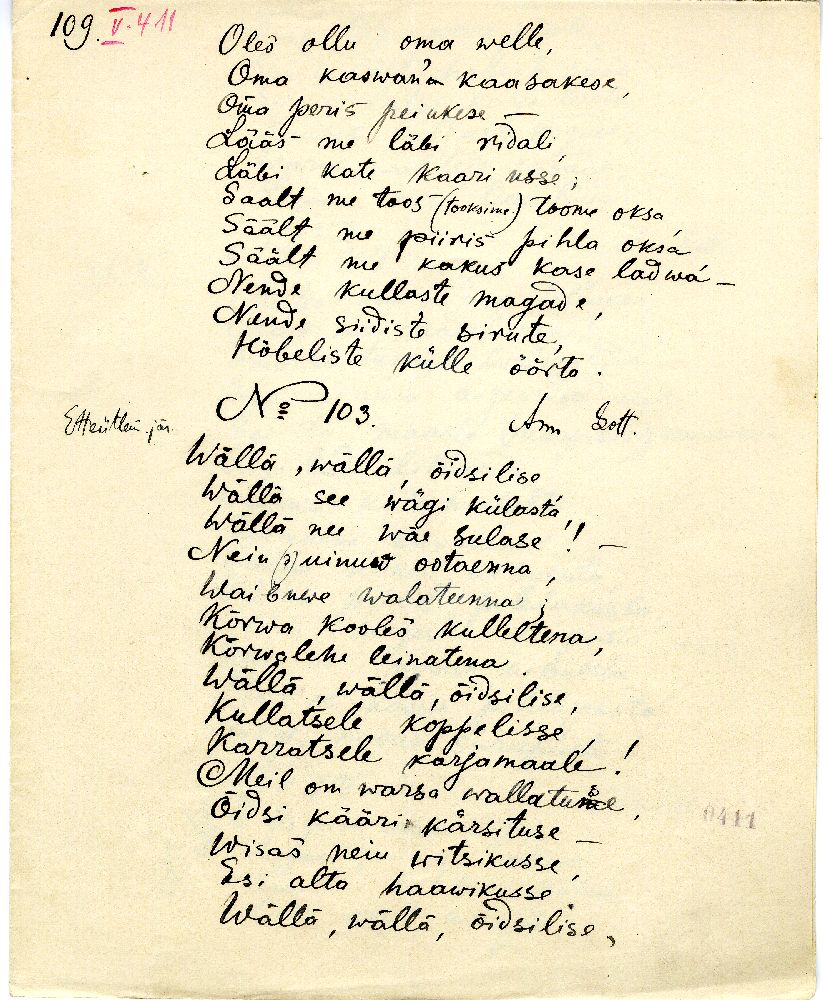 109. V. 411
Oles ollu oma welle,
Oma kaswan'a kaasakese,
Oma peris peiukese —
Lääs me läbi ridali,
Läbi kate kaari usse;
Saalt me toos (tooksime) toome oksa
Säält me piiris pihla oksa
Säält me kakus kase ladwa —
Nende kullaste magade,
Nende siidiste sirute,
Hõbeliste külle öörto.
No 103. Ann Sott.
Wällä, wällä, õidsilise
Wällä see wägi külasta,
Wällä nee wäe sulase! —
Nein (s) uinuwa ootaenna,
Waibuwe walateenna;
Kõrwa kooles kulleltena,
Kõrwalehe leinatena.
Wällä, wällä, õidsilise,
Kullatsele koppelisse,
Karratsele karjamaale!
Meil om warsa wallatuse,
Õidsi kääri kärsituse —
Wisas neiu witsikusse,
Esi alta haawikusse
Wällä, wällä, õidsilise,
0411